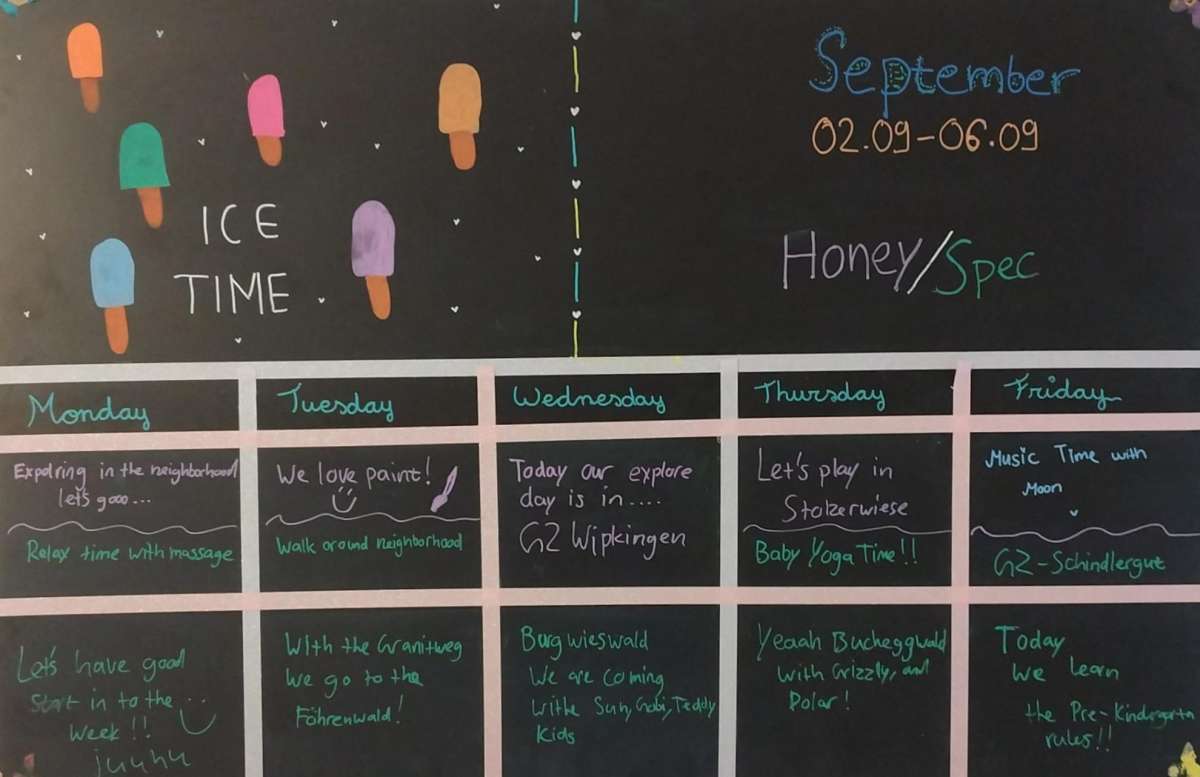 ICE
TIME
September
02.09-06.09
Honey/Spec
Monday
Tuesday
Wednesday
Thursday
Friday
Expolring in the neighborhood
let's gooo...
Relax time with massage
We love paint!
Walk around neighborhood
Today our explore
day is in....
GZ Wipkingen
Let's play in
Stolzerwiese
Baby Yoga Time!!
Music Time with
Moon
GZ-Schindlergut
Let's have good
start in to the
Week!!
juuhu
With the Granitweg
We go to the
Föhrenwald!
Burgwieswald
We are coming
withe Sun, Gobi, Teddy
Kids
Yeaah Bucheggwald
with Grizzly, and
Polar!
Today
We learn
the Pre-Kindergarten
rules!!